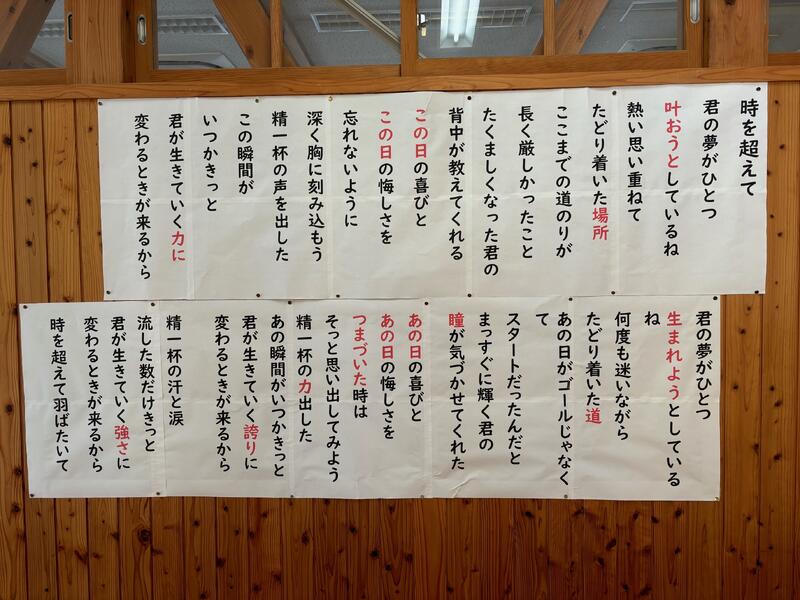 時を超えて
君の夢がひとつ
叶おうとしているね
熱い思い重ねて
たどり着いた場所
ここまでの道のりが
長く厳しかったこと
たくましくなった君の
背中が教えてくれる
この日の喜びと
この日の悔しさを
忘れないように
深く胸に刻み込もう
精一杯の声を出した
この瞬間が
いつかきっと
君が生きていく力に
変わるときが来るから
君の夢がひとつ
生まれようとしている
ね
何度も迷いながら
たどり着いた道
あの日がゴールじゃなく
て
スタートだったんだと
まっすぐに輝く君の
瞳が気づかせてくれた
あの日の喜びと
あの日の悔しさを
つまづいた時は
そっと思い出してみよう
精一杯の力出した
あの瞬間がいつかきっと
君が生きていく誇りに
変わるときが来るから
精一杯の汗と涙
流した数だけきっと
君が生きていく強さに
変わるときが来るから
時を超えて羽ばたいて